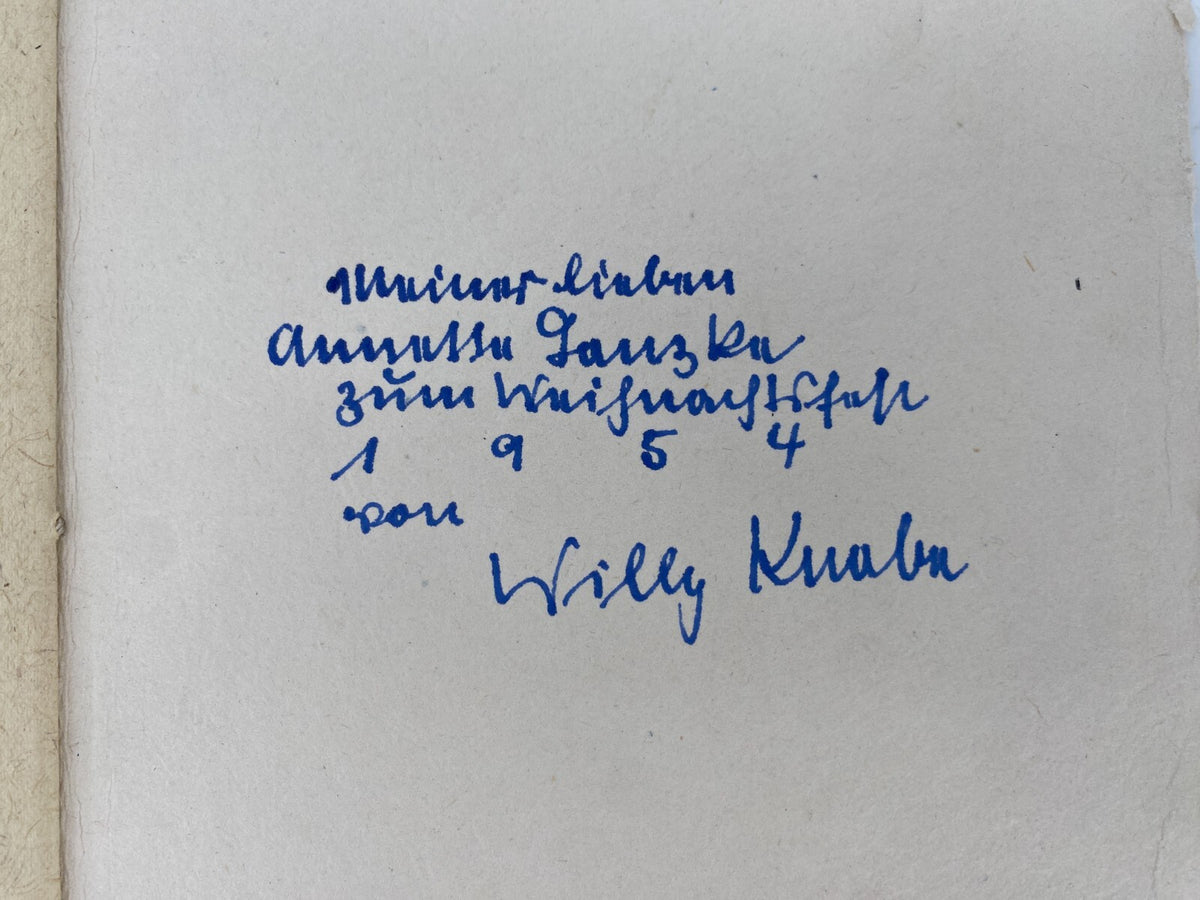 Meiner lieben
Annette Ganzke
zum Weihnachtsfest
1 9 5 4
von
Willy Knabe